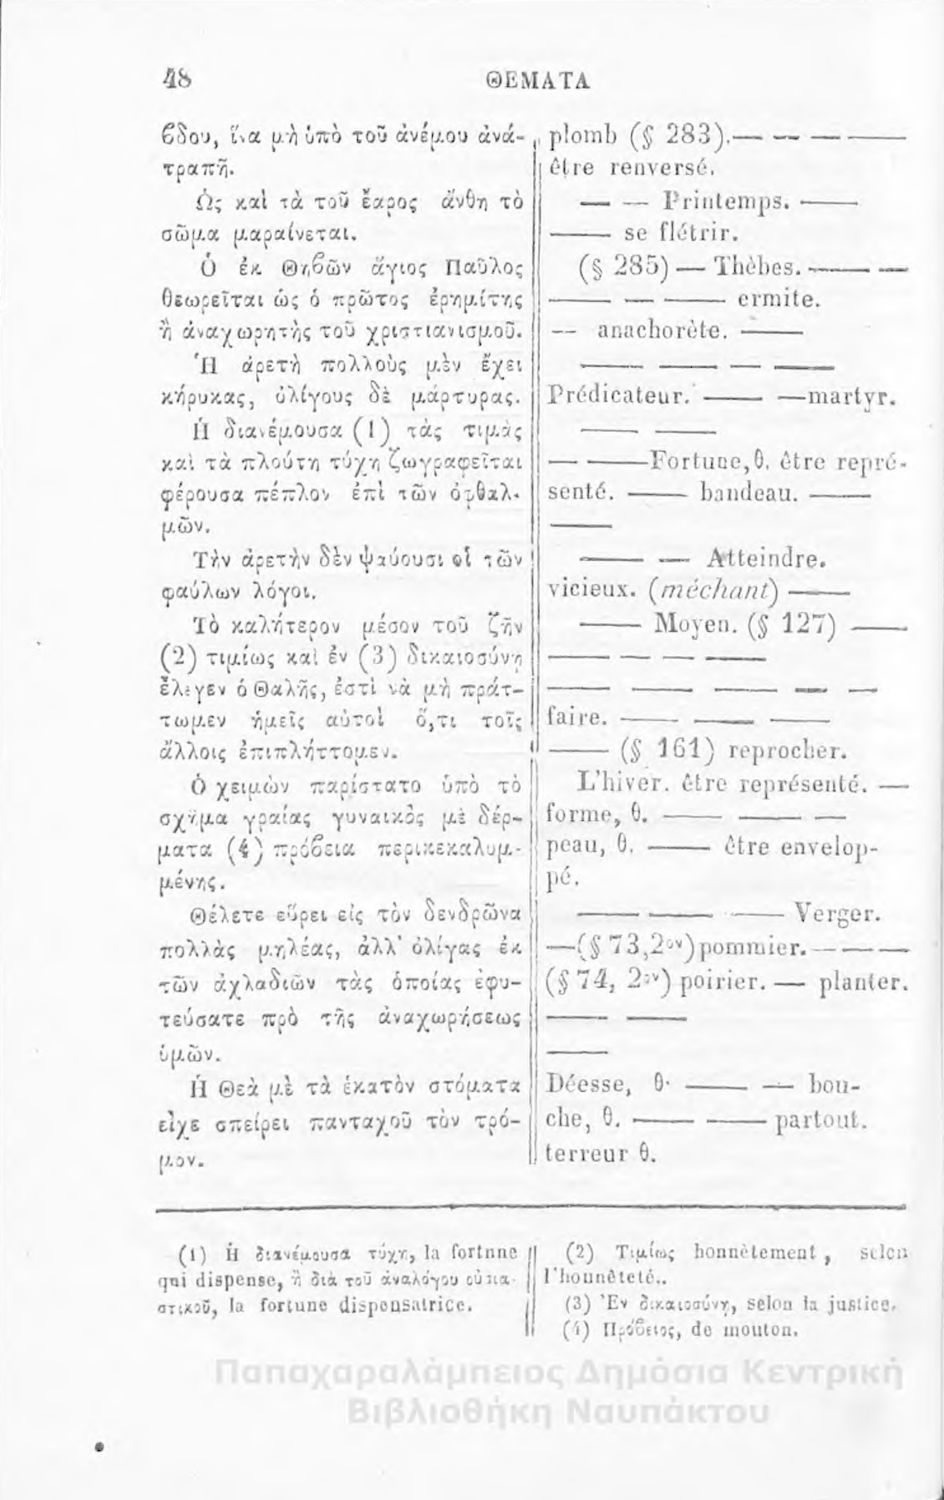 48
ΘΕΜΑΤΑ
ϐδου, ἵνα μὴ ὑπὸ τοῦ ἀνέμου ἀνα-
τραπῇ.
Ὡς καὶ τὰ τοῦ ἔαρος ἄνθη τὸ
σῶμα μαραίνεται.
Ὁ ἐκ Θηϐῶν ἅγιος Παῦλος
θεωρεῖται ὡς ὁ πρῶτος ἐρημίτης
ἢ ἀναχωρητὴς τοῦ χριστιανισμοῦ.
Ἡ ἀρετὴ πολλοὺς μὲν ἔχει
κήρυκας, ὀλίγους δὲ μάρτυρας.
Ἡ διανέμουσα (1) τὰς τιμὰς
καὶ τὰ πλούτη τύχη ζωγραφεῖται
φέρουσα πέπλον ἐπὶ τῶν ὀφθαλ-
μῶν.
Τὴν ἀρετὴν δὲν ψαύουσι οἱ τῶν
φαύλων λόγοι.
Τὸ καλήτερον μέσον τοῦ ζῆν
(2) τιμίως καὶ ἐν (3) δικαιοσύνῃ
ἔλεγεν ὁ Θαλῆς, ἐστὶ νὰ μὴ πράτ-
τωμεν ἡμεῖς αὐτοὶ ὅ,τι τοῖς
ἄλλοις ἐπιπλήττομεν.
Ὁ χειμὼν παρίστατο ὑπὸ τὸ
σχῆμα γραίας γυναικὸς μὲ δέρ-
ματα (4) πρόϐεια περικεκαλυμ-
μένης.
Θέλετε εὕρει εἰς τὸν δενδρῶνα
πολλὰς μηλέας, ἀλλ' ὀλίγας ἐκ
τῶν ἀχλαδιῶν τὰς ὁποίας ἐφυ-
τεύσατε πρὸ τῆς ἀναχωρήσεως
ὑμῶν.
Ἡ Θεὰ μὲ τὰ ἑκατὸν στόματα
εἶχε σπείρει πανταχοῦ τὸν τρό-
μον.
plomb (§ 283).— — — ——
être renversé.
— — Printemps. ——
—— se flétrir.
(§ 285) — Thèbes. —— —
—— — —— ermite.
— anachorète. ——
—— —— — ——
Prédicateur. —— —martyr.
—— ——
— ——Fortune,θ. être repré-
senté. —— bandeau. ——
——
—— — Atteindre.
vicieux. (méchant) ——
—— Moyen. (§ 127) ——
—— — — ——
—— — —— — —
faire. —— —— ——
—— (§ 161) reprocher.
L'hiver. être représenté. —
forme, θ. —— —— —
peau, θ. —— être envelop-
pé.
—— —— —— Verger.
—(§ 73,2ον) pommier.— ——
(§ 74, 2ον) poirier. — planter.
—— ——
——
Déesse, θ· —— — bou-
che, θ. —— —— partout.
terreur θ.
(1) Ἡ διανέμουσα τύχη, la fortnne
qui dispense, ἢ διὰ τοῦ ἀναλόγου οὐσια-
στικοῦ, la fortune dispensatrice.
(2) Τιμίως honnêtement, selon
l'honnêteté..
(3) Ἐν δικαιοσύνῃ, selon la justice.
(4) Πρόϐειος, de mouton.
Παπαχαραλάμπειος Δημόσια Κεντρική
Βιβλιοθήκη Ναυπάκτου